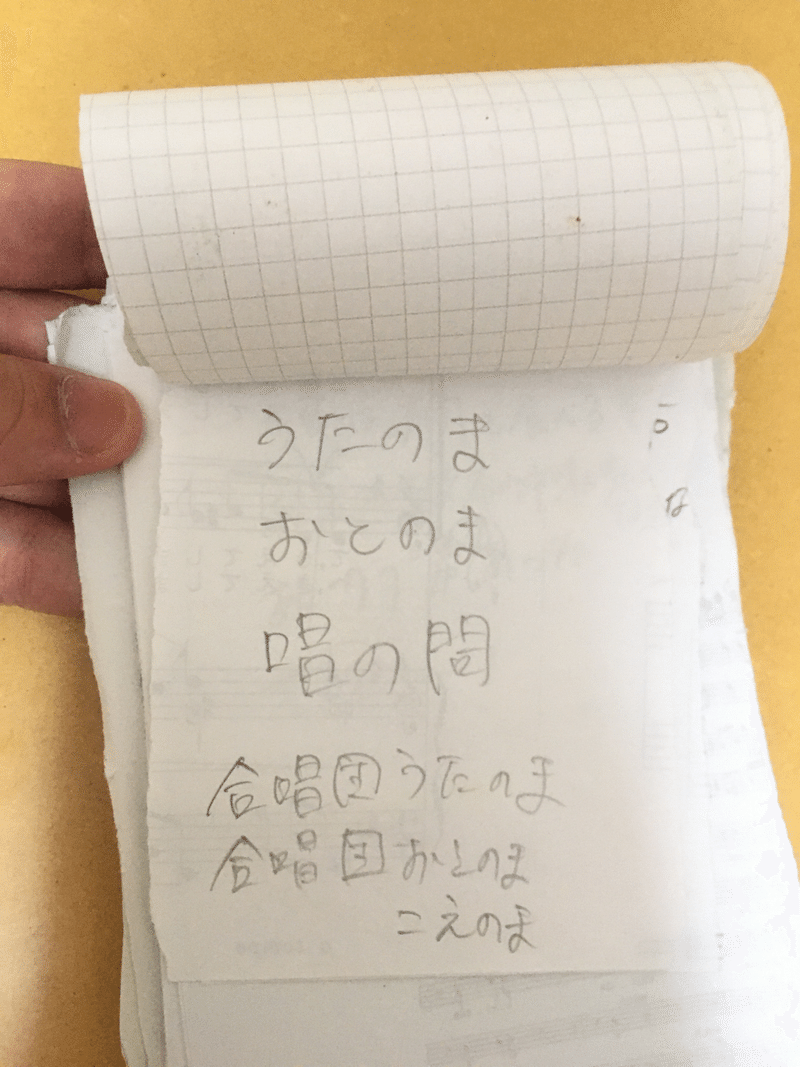 うたのま
おとのま
唱の間
合唱団うたのま
合唱団おとのま
こえのま